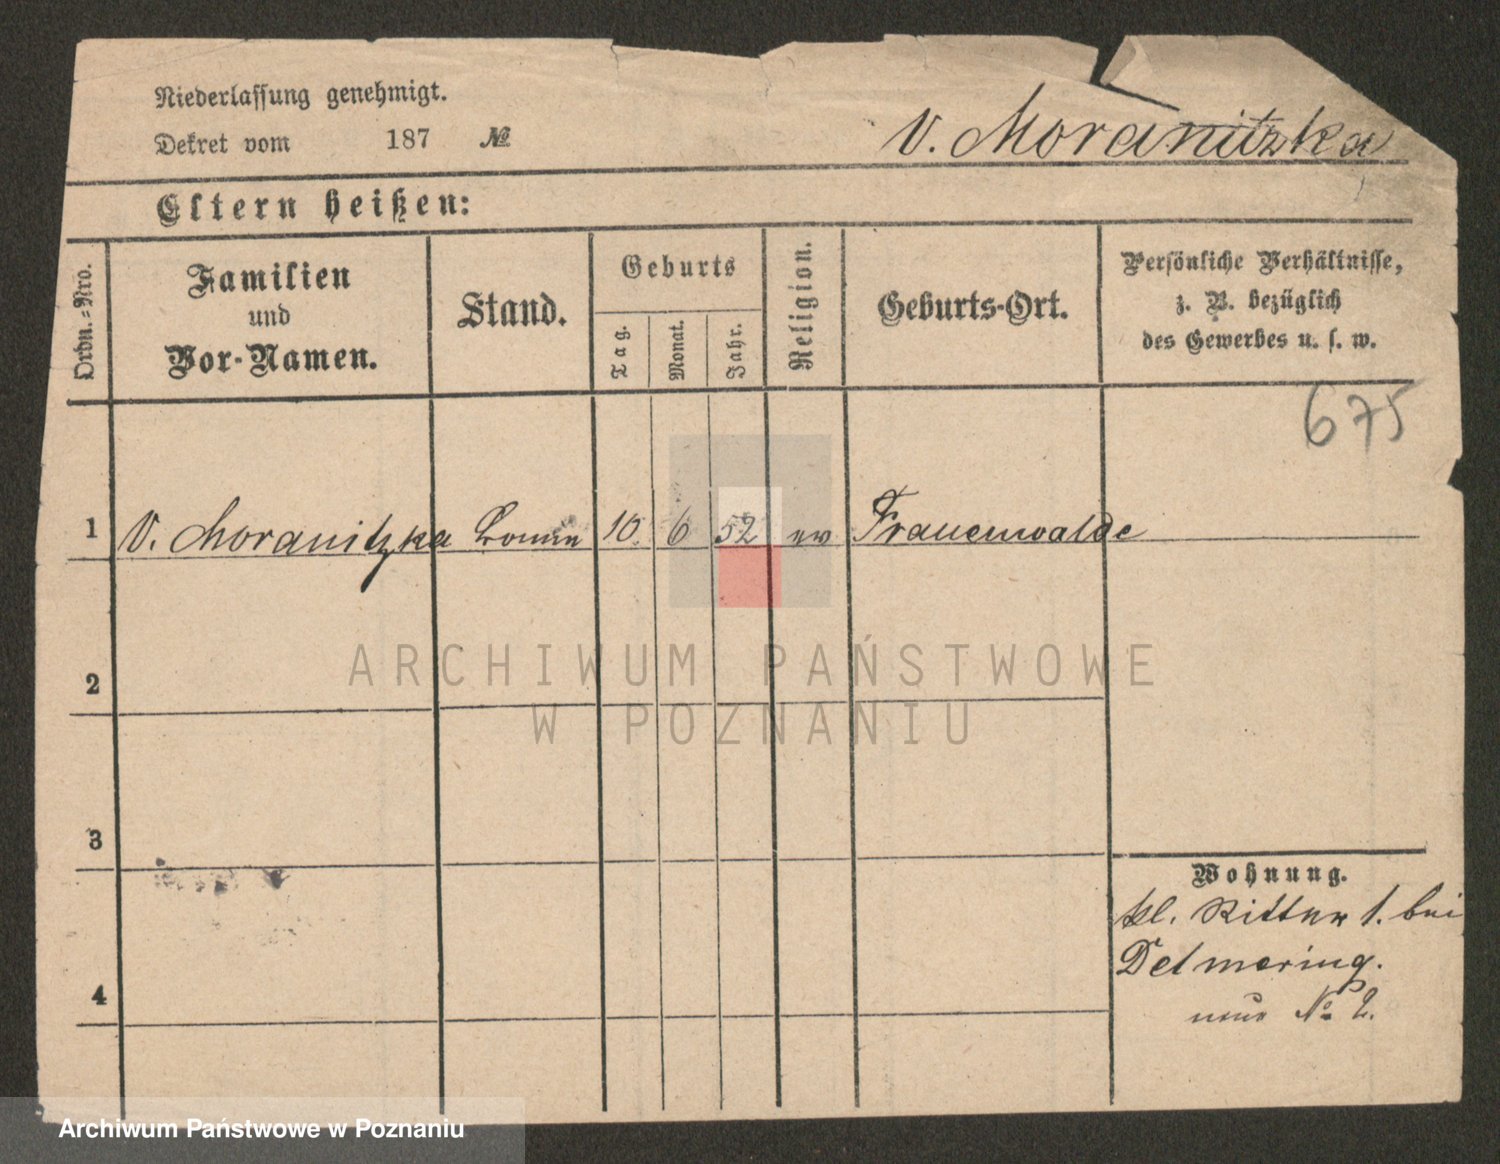 Niederlassung genehmigt.
Dekret vom 187 №
v. Moranitzka
Eltern heißen:
Ordn.-Nro.
Familien
und
Vor-Namen.
Stand.
Geburts
Tag.
Monat.
Jahr.
Religion.
Geburts-Ort.
Persönliche Verhältnisse,
z. B. bezüglich
des Gewerbes u. s. w.
675
1 v. Moranitzka 10 6 52 ev Frauenwalde
2
3
4
Wohnung.
kl. Ritter 1. bei
Detmering.
neue № 2.
ARCHIWUM PAŃSTWOWE
W POZNANIU
Archiwum Państwowe w Poznaniu